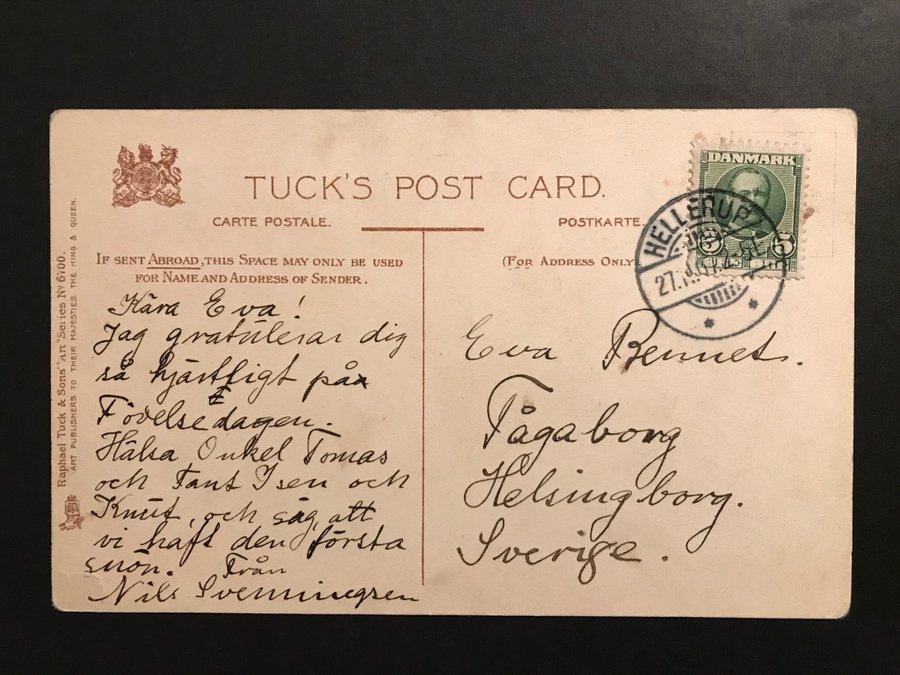 TUCK'S POST CARD.
CARTE POSTALE.
POSTKARTE.
IF SENT ABROAD, THIS SPACE MAY ONLY BE USED
FOR NAME AND ADDRESS OF SENDER.
(FOR ADDRESS ONLY
Raphael Tuck & Sons' "Art" Series No 6700.
ART PUBLISHERS TO THEIR MAJESTIES THE KING & QUEEN.
Kära Eva!
Jag gratulerar dig
så hjärtligt på
Födelsedagen.
Hälsa Onkel Tomas
och Tant Isen och
Knut, och säg, att
vi haft den första
snön. Från
Nils Svenningsen
DANMARK
5 5
HELLERUP
27.
Eva Bennet.
Tågaborg
Helsingborg.
Sverige.